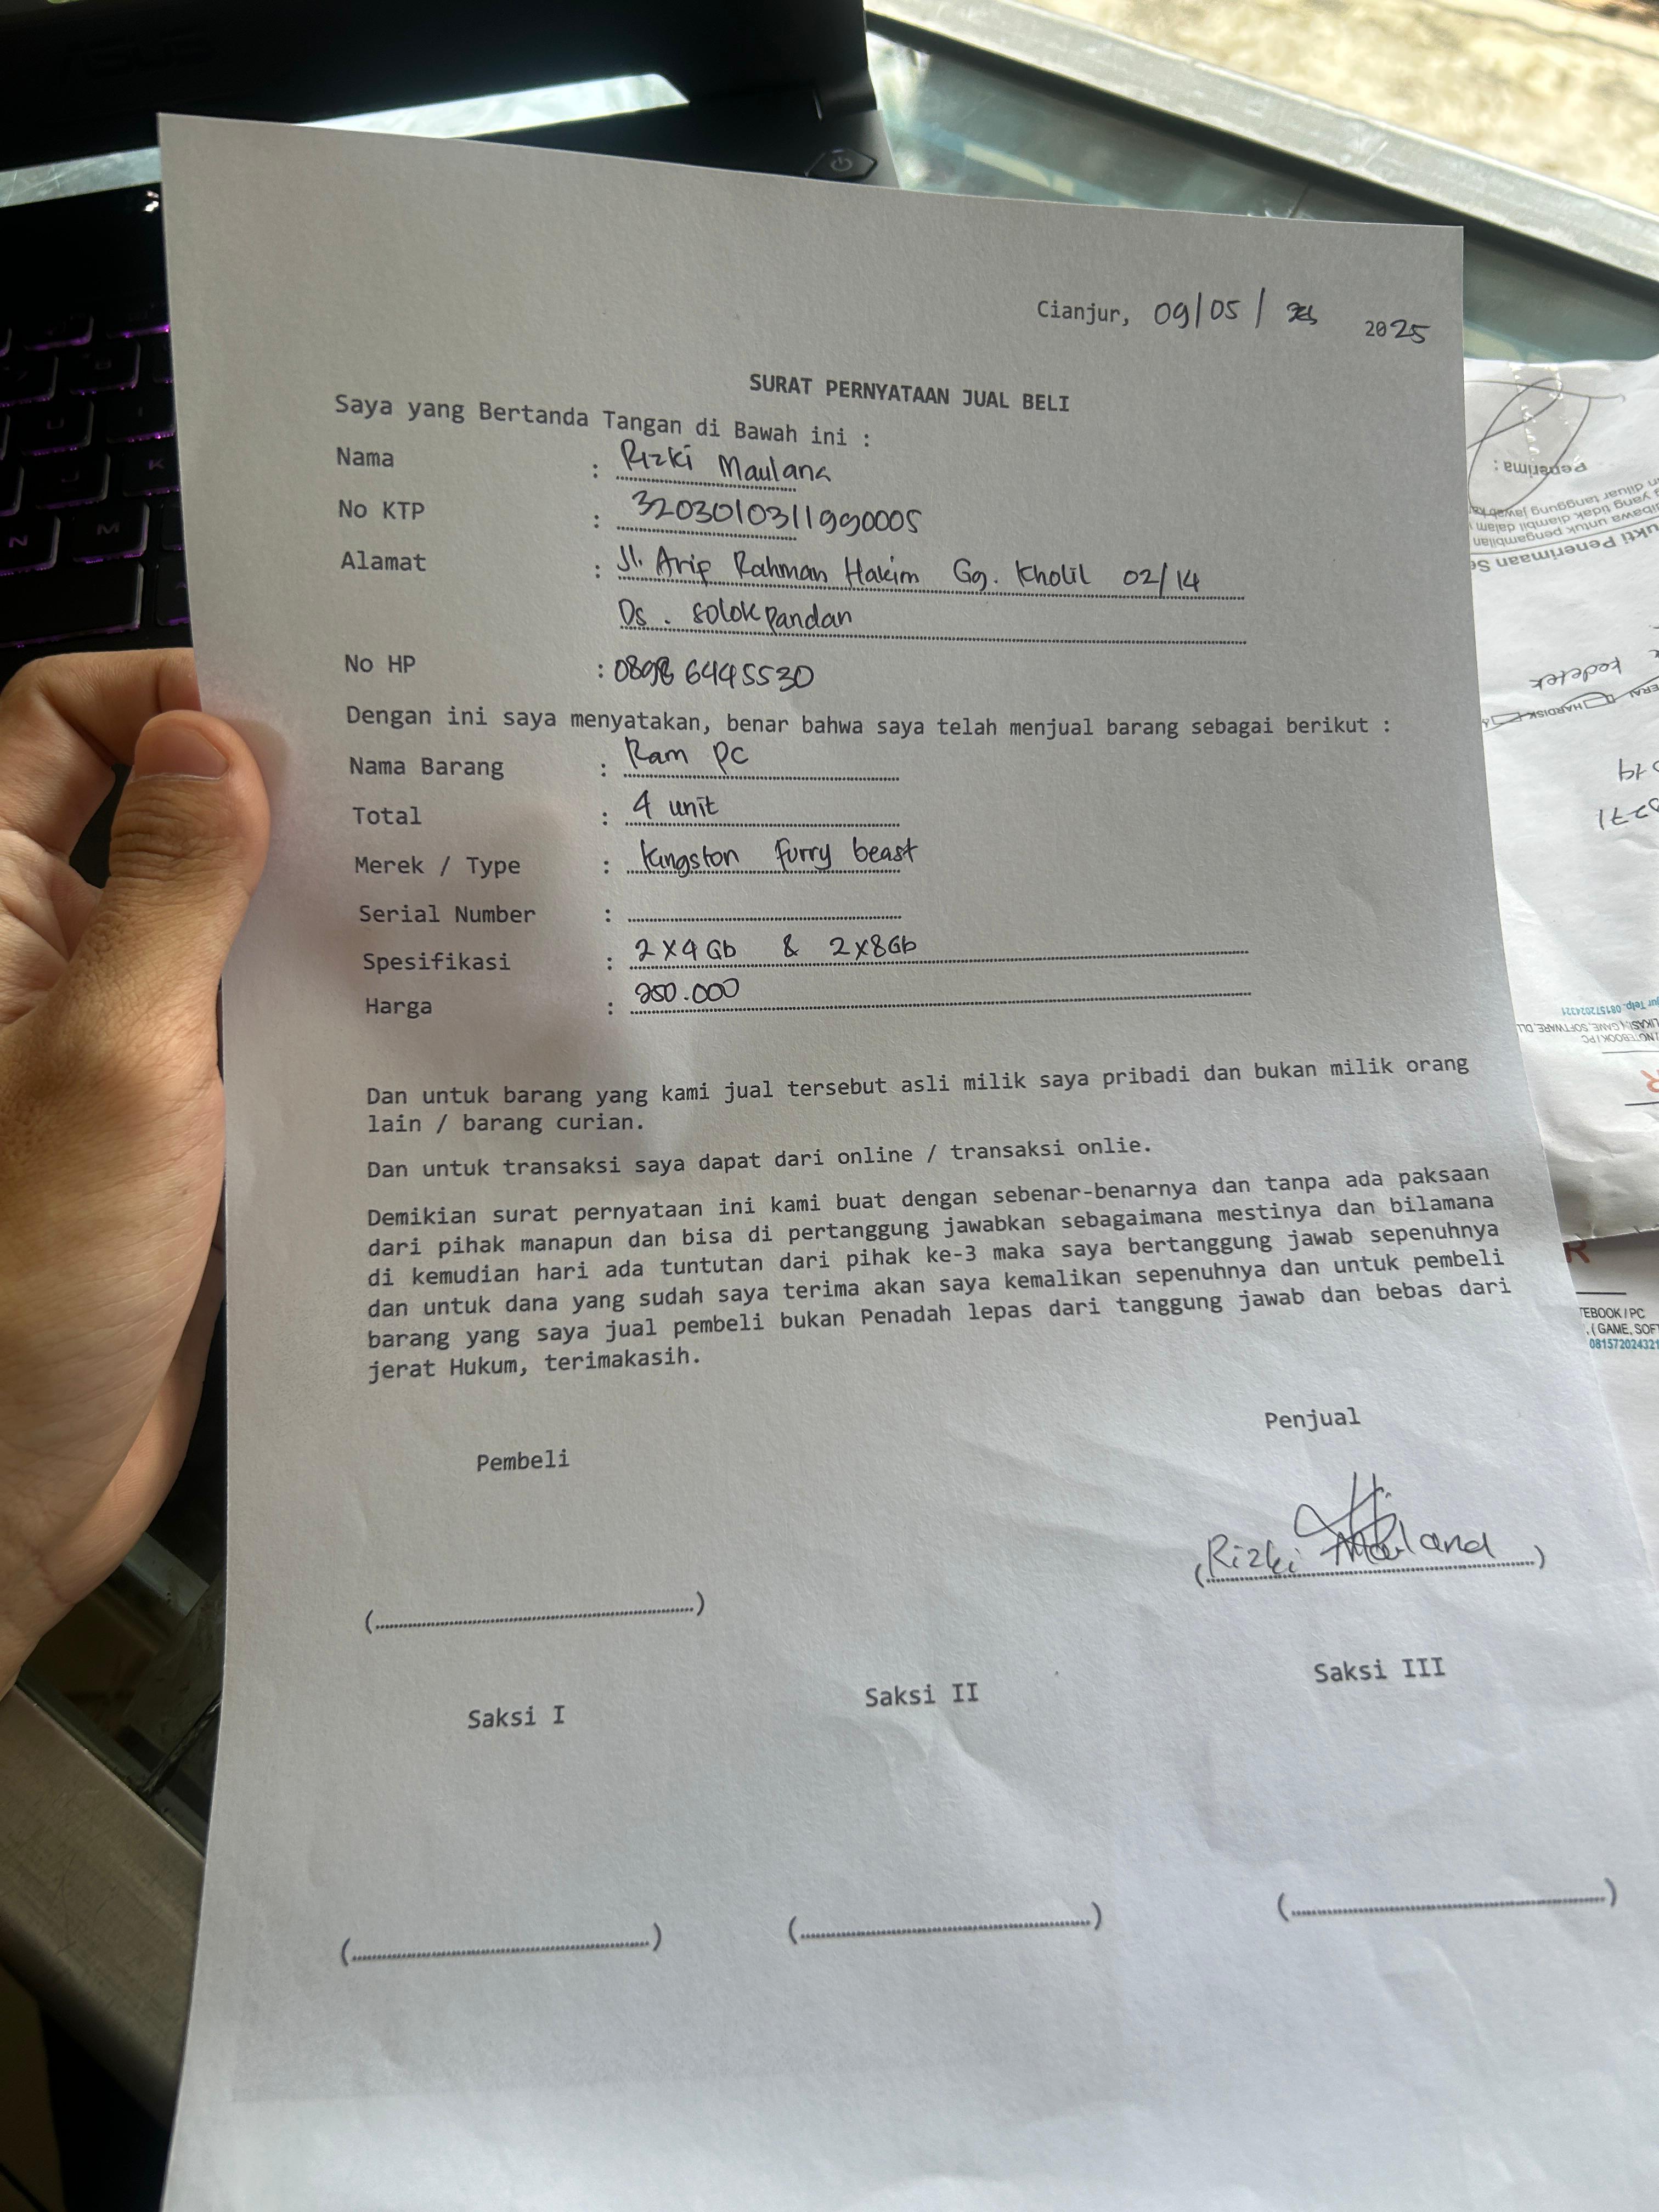 Cianjur, 09/05/ 2025
SURAT PERNYATAAN JUAL BELI
Saya yang Bertanda Tangan di Bawah ini :
Nama : Rizki Maulana
No KTP : 3203010311990005
Alamat : Jl. Arip Rahman Hakim Gg. Kholil 02/14
Ds. Solokpandan
No HP : 0898 6445530
Dengan ini saya menyatakan, benar bahwa saya telah menjual barang sebagai berikut :
Nama Barang : Ram PC
Total : 4 unit
Merek / Type : Kingston furry beast
Serial Number :
Spesifikasi : 2x4Gb & 2x8Gb
Harga : 250.000
Dan untuk barang yang kami jual tersebut asli milik saya pribadi dan bukan milik orang
lain / barang curian.
Dan untuk transaksi saya dapat dari online / transaksi onlie.
Demikian surat pernyataan ini kami buat dengan sebenar-benarnya dan tanpa ada paksaan
dari pihak manapun dan bisa di pertanggung jawabkan sebagaimana mestinya dan bilamana
di kemudian hari ada tuntutan dari pihak ke-3 maka saya bertanggung jawab sepenuhnya
dan untuk dana yang sudah saya terima akan saya kemalikan sepenuhnya dan untuk pembeli
barang yang saya jual pembeli bukan Penadah lepas dari tanggung jawab dan bebas dari
jerat Hukum, terimakasih.
Pembeli Penjual
(Rizki Maulana)
Saksi I Saksi II Saksi III
Penerima :
kedetek
HARDISK
NOTEBOOK / PC
Telp. 081572024321
TEBOOK / PC
081572024321